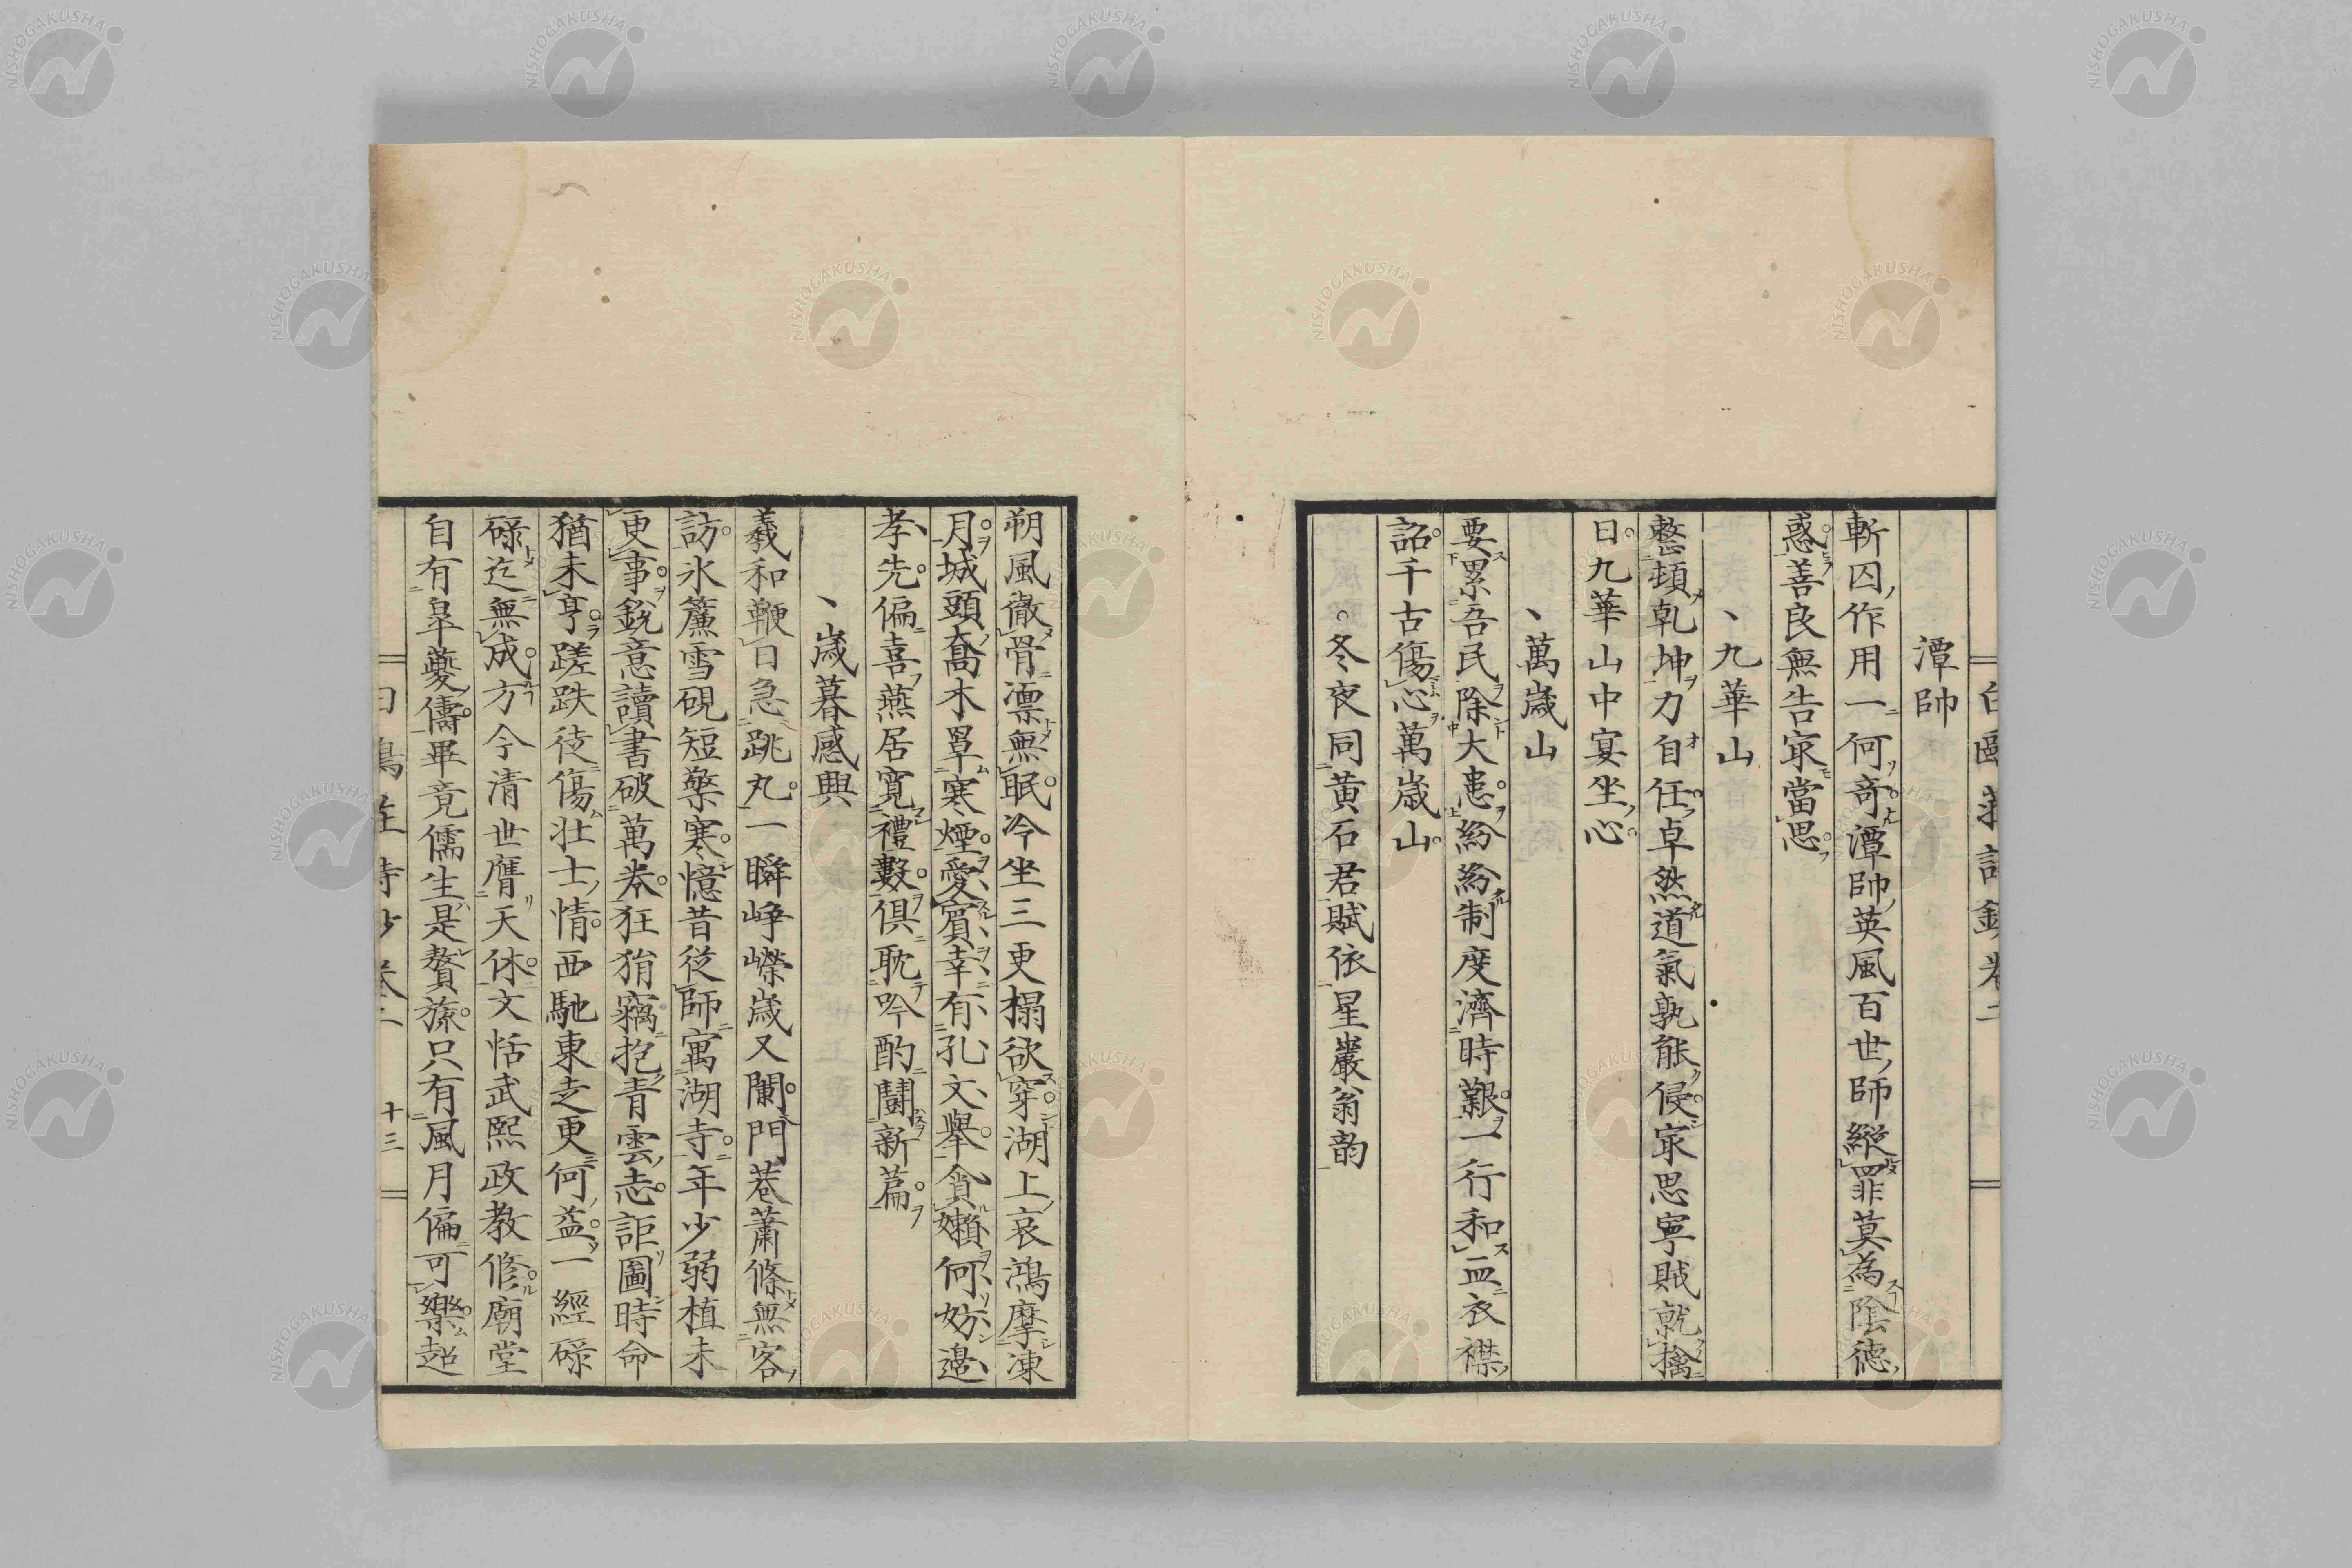 潭帥
斬囚作用一何奇潭帥英風百世師縱罪莫為陰德
惑善良無告冣當思
九華山
整頓乾坤力自任卓然道氣孰能侵冣思寧賊就擒
日九華山中宴坐心
萬歲山
要累吾民除大患紛紛制度濟時艱一行和血衣襟
詔千古傷心萬歲山
冬夜同黃石君賦依星巖翁韵
朔風徹骨凛無眠冷坐三更榻欲穿湖上哀鴻摩凍
月城頭喬木罩寒煙愛賓幸有孔文舉貪嬾何妨邉
孝先偏喜燕居寬禮數俱耽吟酌鬪新篇
歲暮感興
羲和鞭日急跳丸一瞬崢嶸歲又闌門巷蕭條無客
訪氷簾雪硯短檠寒憶昔從師寓湖寺年少弱植未
更事銳意讀書破萬卷狂狷竊抱青雲志詎圖時命
猶未亨蹉跌徒傷壯士情西馳東走更何益一經碌
碌迄無成方今清世膺天休文恬武熙政教修廟堂
自有皐夔儔畢竟儒生是贅旒只有風月偏可樂起
十三